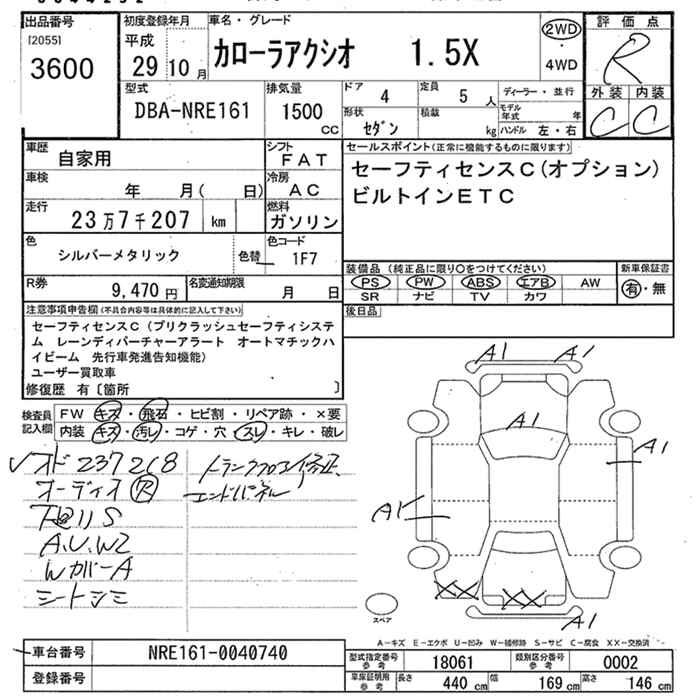 出品番号
[2055]
3600
初度登録年月
平成
29 10 月
車名・グレード
カローラアクシオ 1.5X
2WD
・
4WD
評価点
R
外装 内装
C C
型式
DBA-NRE161
排気量
1500
CC
ドア
4
定員
5 人
形状
セダン
積載
kg
ディーラー・並行
モデル年式 年
ハンドル 左・右
車歴
自家用
シフト
FAT
車検
年 月( 日)
冷房
AC
走行
23万7千207 km
燃料
ガソリン
色
シルバーメタリック
色替
色コード
1F7
R券
9,470 円
名変通知期限
月 日
セールスポイント(正常に機能するものに限ります)
セーフティセンスC(オプション)
ビルトインETC
装備品 (純正品に限り○をつけてください)
PS PW ABS エアB AW
SR ナビ TV カワ
新車保証書
有・無
後日品
注意事項申告欄(不具合内容等は具体的に記入して下さい)
セーフティセンスC(プリクラッシュセーフティシステ
ム レーンディパーチャーアラート オートマチックハ
イビーム 先行車発進告知機能)
ユーザー買取車
修復歴 有〔箇所 〕
検査員
記入欄
FW キズ・飛石・ヒビ割・リペア跡・×要
内装 キズ・汚レ・コゲ・穴・スレ・キレ・破レ
オド 237218
オーディオ R
下廻リS
A.U.W2
WカバーA
シートシミ
トランクフロア修正、
エンドパネル
A1 A1
A1
A1
A1
XX XX
A1
スペア
A-キズ E-エクボ U-凹み W-補修跡 S-サビ C-腐食 XX-交換済
車台番号
NRE161-0040740
登録番号
型式指定番号
参考
18061
類別区分番号
参考
0002
車庫証明用
参考
長さ 440 cm 幅 169 cm 高さ 146 cm